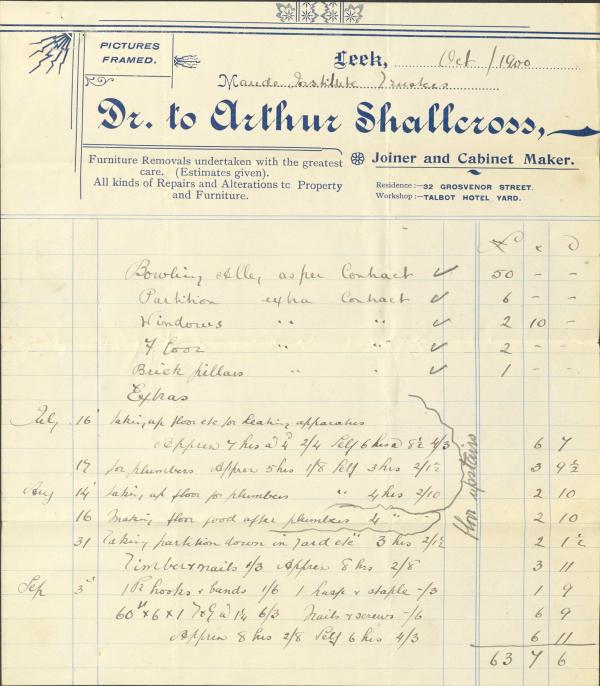 PICTURES
FRAMED.
Leek, Oct / 1900
Maude Institute Trustees
Dr. to Arthur Shallcross,
Furniture Removals undertaken with the greatest
care. (Estimates given).
All kinds of Repairs and Alterations to Property
and Furniture.
Joiner and Cabinet Maker.
Residence :—32 GROSVENOR STREET.
Workshop :—TALBOT HOTEL YARD.
£ s D
Bowling Alley as per Contract ✓ 50 - -
Partition extra Contract ✓ 6 - -
Windows " " ✓ 2 10 -
Floor " " ✓ 2 - -
Brick pillars " " ✓ 1 - -
Extras
July 16 taking up floor etc for heating apparatus
Appren 7 hrs a 4d 2/4 Self 6 hrs a 8½ 4/3 6 7
17 for plumbers Appren 5 hrs 1/8 Self 3 hrs 2/1½ 3 9½
Aug 14 taking up floor for plumbers " 4 hrs 2/10 2 10
16 Making floor good after plumbers 4 " " 2 10
floor upstairs
31 taking partition down in yard etc 3 hrs 2/1½ 2 1½
Timber & nails 1/3 Appren 8 hrs 2/8 3 11
Sep 3 1 Pr hooks & bands 1/6 1 hasp & staple -/3 1 9
60ft x 6 x 1 T&G a 1¼ 6/3 Nails & screws -/6 6 9
Appren 8 hrs 2/8 Self 6 hrs 4/3 6 11
63 7 6